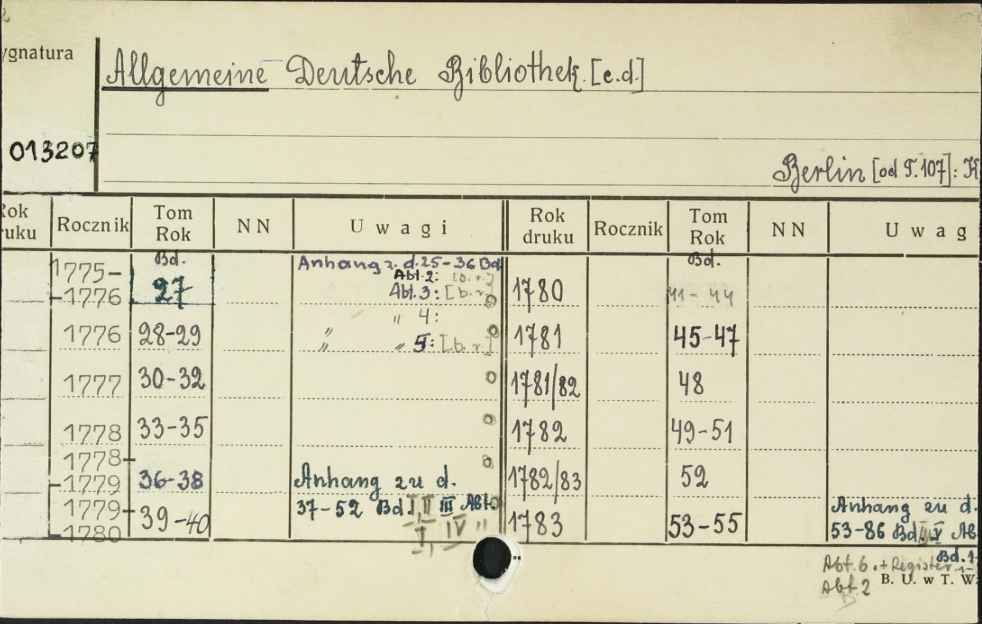 ygnatura
Allgemeine Deutsche Bibliothek. [c.d.]
013207
Berlin [od T. 107]: K
Rok
ruku Rocznik Tom
Rok NN Uwagi Rok
druku Rocznik Tom
Rok NN Uwag
1775-
-1776 Bd.
27 Anhang z. d. 25-36 Bd
Abt. 2: [b.r.]
Abt. 3: [b.r.] 1780 Bd.
41-44
1776 28-29 " 4:
" " 5: [b.r.] 1781 45-47
1777 30-32 1781/82 48
1778 33-35 1782 49-51
1778-
-1779 36-38 Anhang zu d. 1782/83 52
1779-
-1780 39-40 37-52 Bd I, II III Abt.
I, IV " 1783 53-55 Anhang zu d.
53-86 Bd
Bd. 1
Abt. 6. + Register
Abt 2
B. U. w T. W.